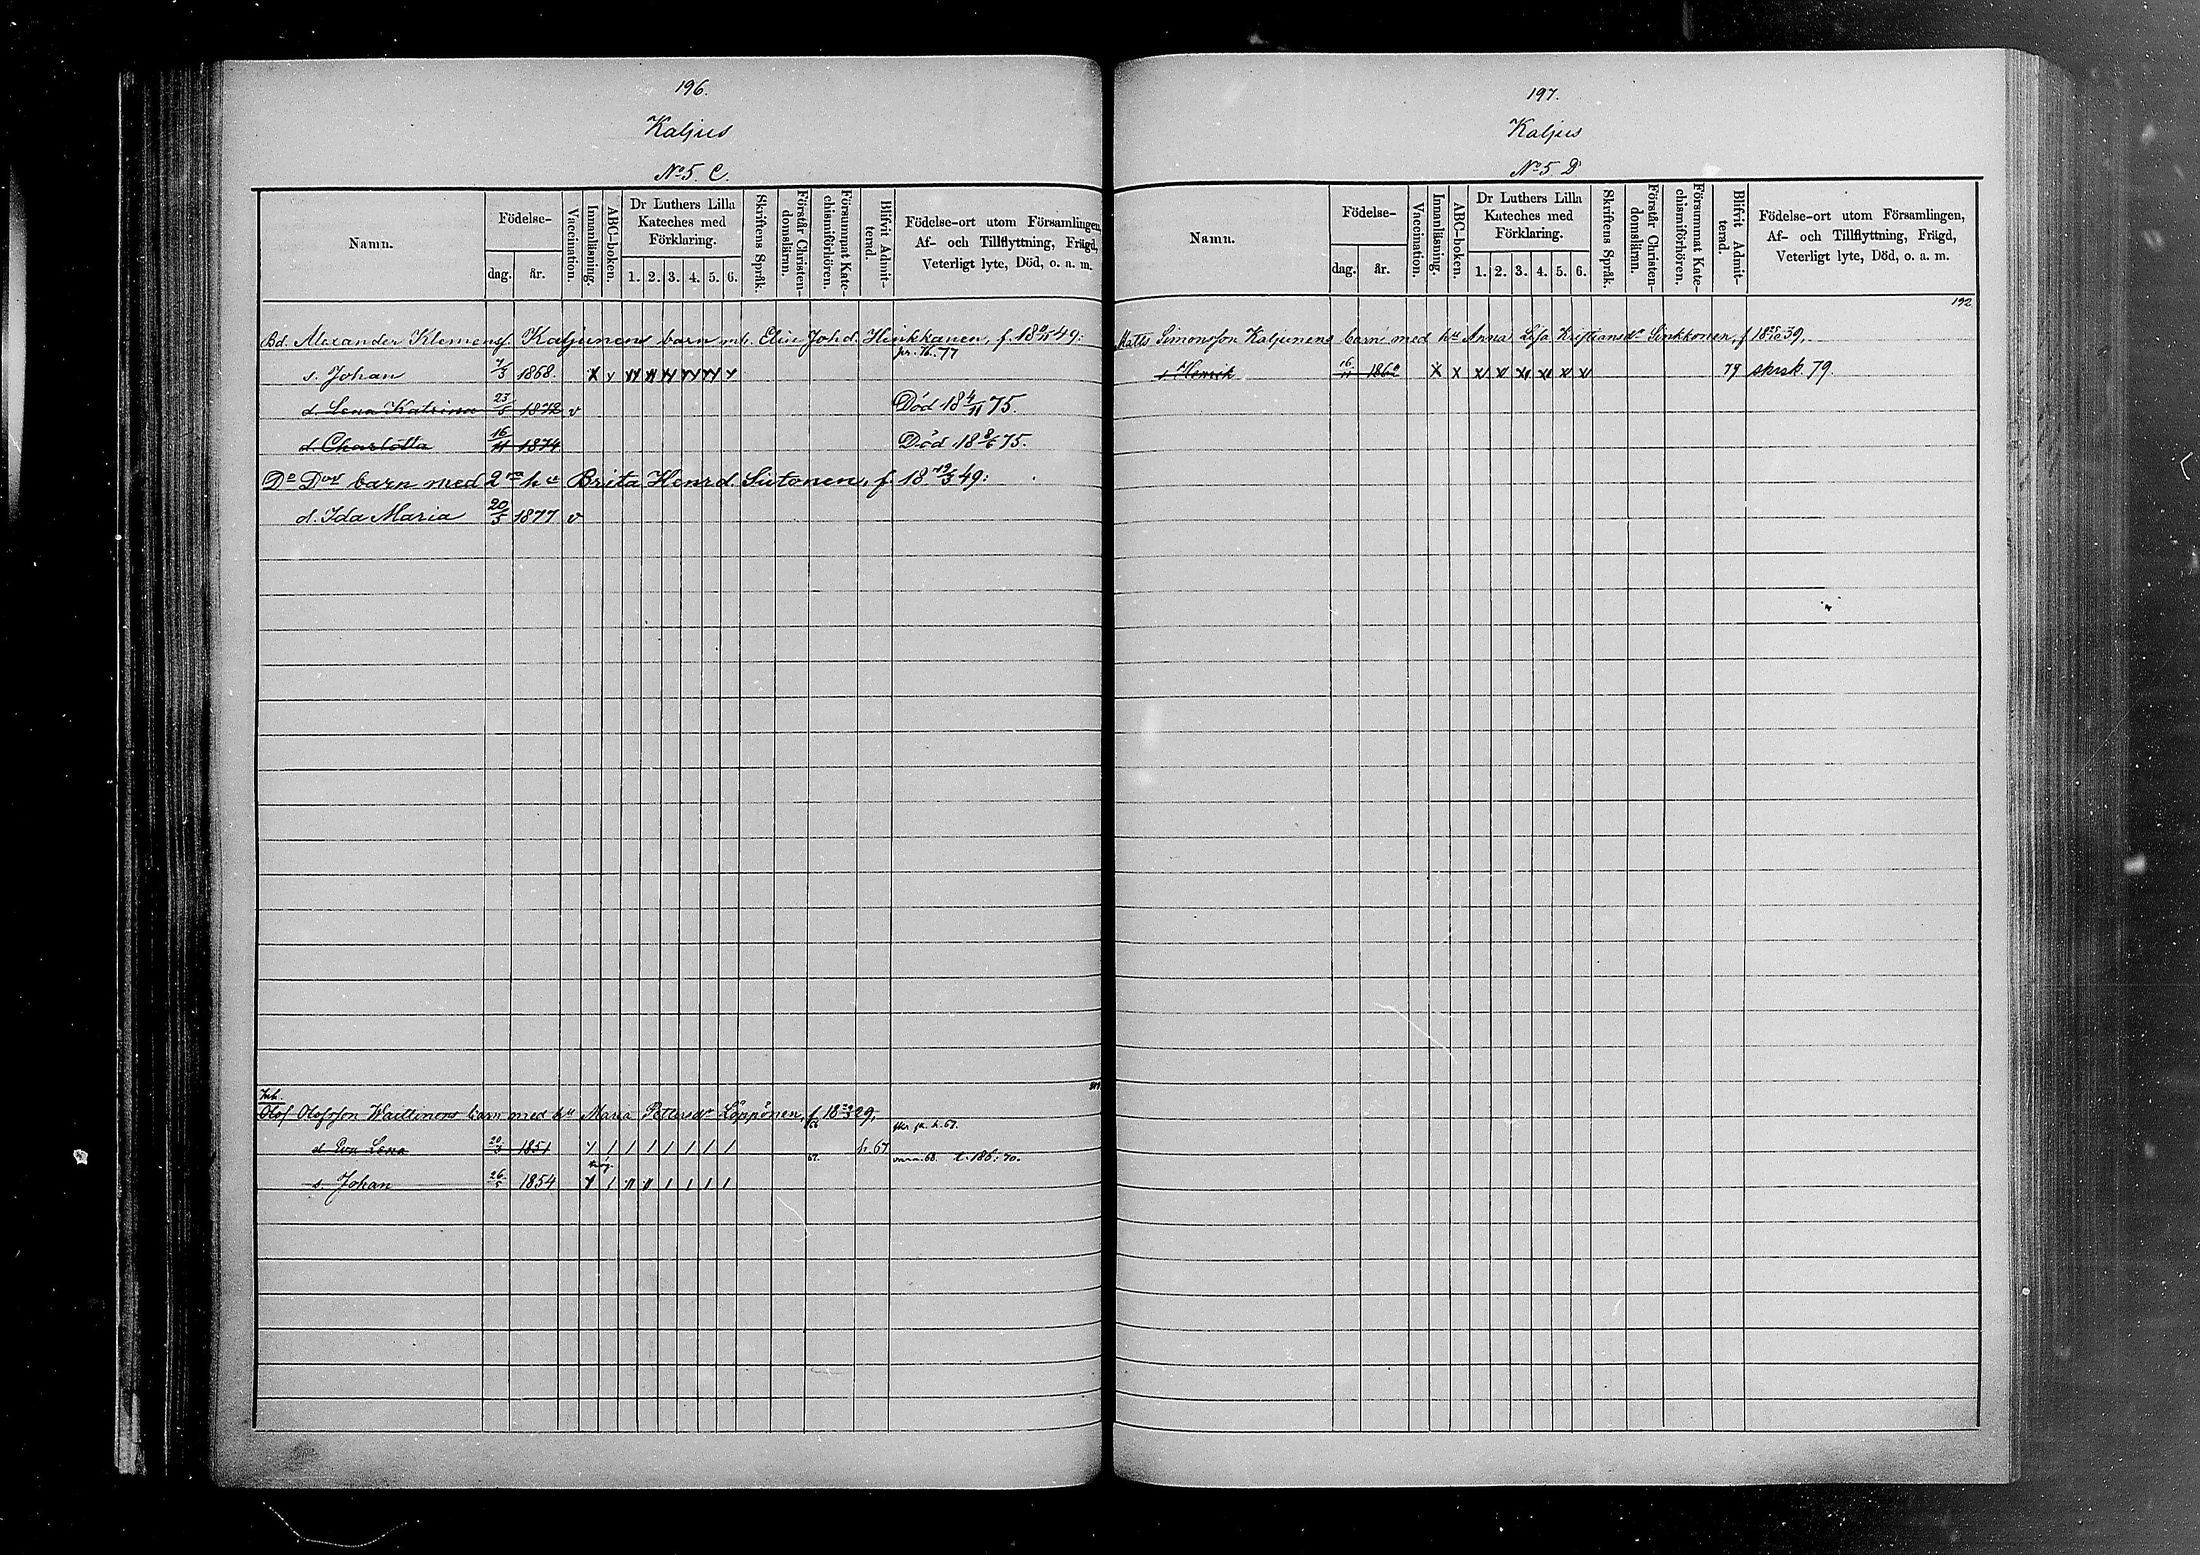 196.
Kaljus
No 5. C.
Namn.
Födelse-
dag.
år.
Vaccination.
Innanläsning.
ABC-boken.
Dr Luthers Lilla Kateches med Förklaring.
1. 2. 3. 4. 5. 6.
Skriftens Språk.
Förstår Christendomsläran.
Försummat Katechismiförhören.
Blifvit Admitterad.
Födelse-ort utom Församlingen,
Af- och Tillflyttning, Frägd,
Veterligt lyte, Död, o. a. m.
Bd. Alexander Klemenss. Kaljunens barn m. h. Elin Joh.d. Hinkkanen, f. 49:
s. Johan 7/3 1868. 77
d. Lena Katrina 23/5 1872 v Död 18 4/11 75.
d. Charlotta 16/11 1874 Död 18 8/6 75.
Do Dos barn med 2ra hu Brita Henrd. Siitonen, f. 18 12/3 49:
d. Ida Maria 20/3 1877 v
Inh.
Olof Olofsson barn med hu Maria Pettersdr Löppönen, f. 29,
d. Eva Lena 1851 67
s. Johan 26/5 1854 68. 186: 70.
197.
Kaljus
No 5 D
Namn.
Födelse-
dag.
år.
Vaccination.
Innanläsning.
ABC-boken.
Dr Luthers Lilla Kateches med Förklaring.
1. 2. 3. 4. 5. 6.
Skriftens Språk.
Förstår Christendomsläran.
Försummat Katechismiförhören.
Blifvit Admitterad.
Födelse-ort utom Församlingen,
Af- och Tillflyttning, Frägd,
Veterligt lyte, Död, o. a. m.
192
Matts Simonsson Kaljunens barn med hu Anna Lisa Kristiansdr Sinkkonen, f. 39,
s. Henrik 79 skrsk. 79.